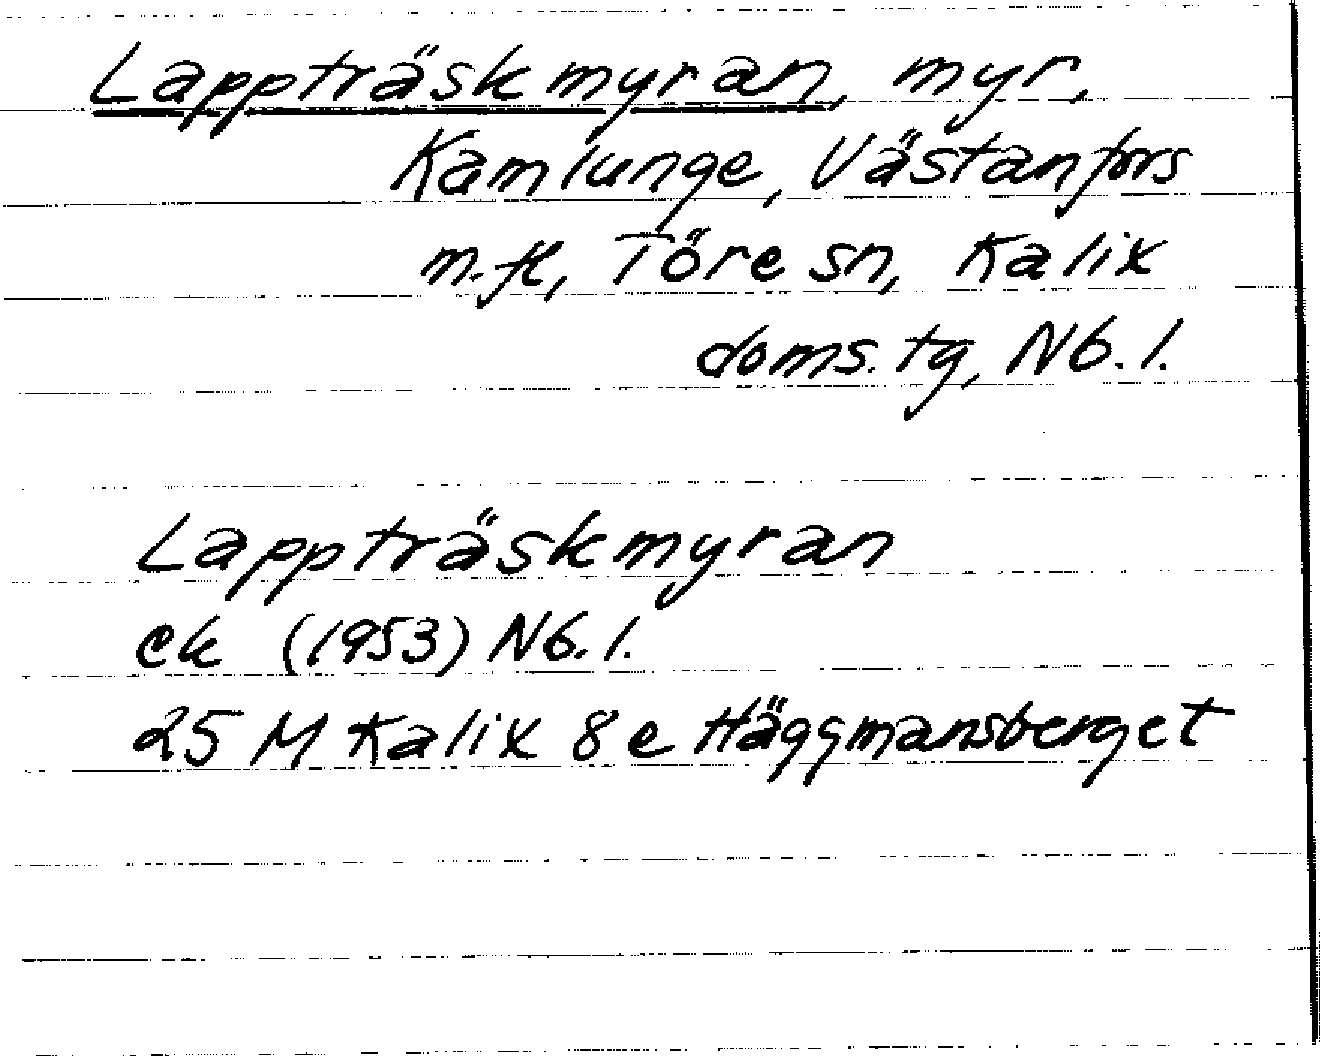 Lappträskmyran, myr,
Kamlunge, Västanfors
m.fl, Töre sn, Kalix
doms. tg, Nb. l.
Lappträskmyran
ek (1953) Nb. l.
25 M Kalix 8 e Häggmansberget